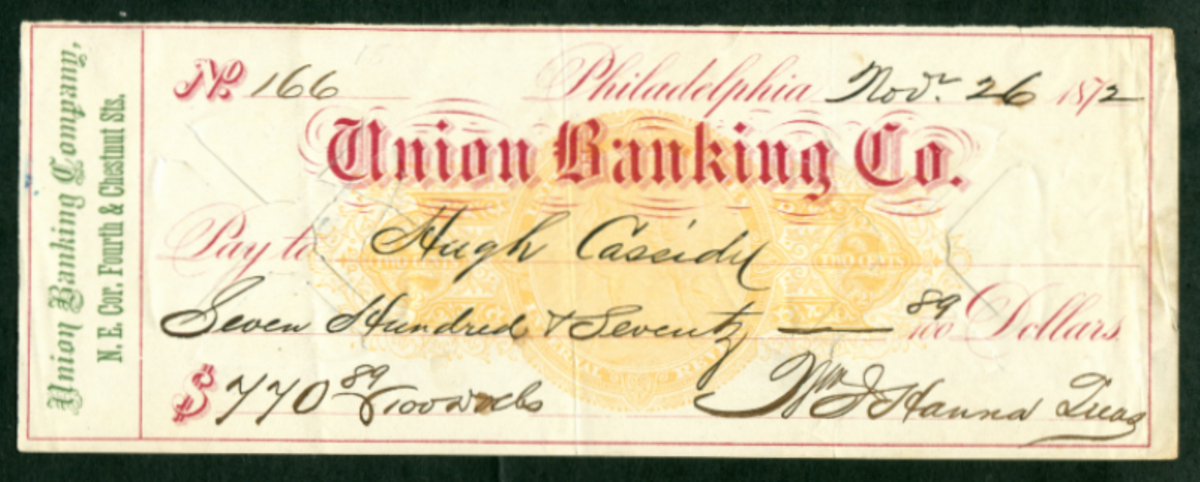 Union Banking Company,
N. E. Cor. Fourth & Chestnut Sts.
No. 166 Philadelphia Nov. 26 1872
Union Banking Co.
Pay to Hugh Cassidy
TWO CENTS TWO CENTS
Seven Hundred & Seventy — 89/100 Dollars
$ 770 89/100
Wm J Hanna Treas